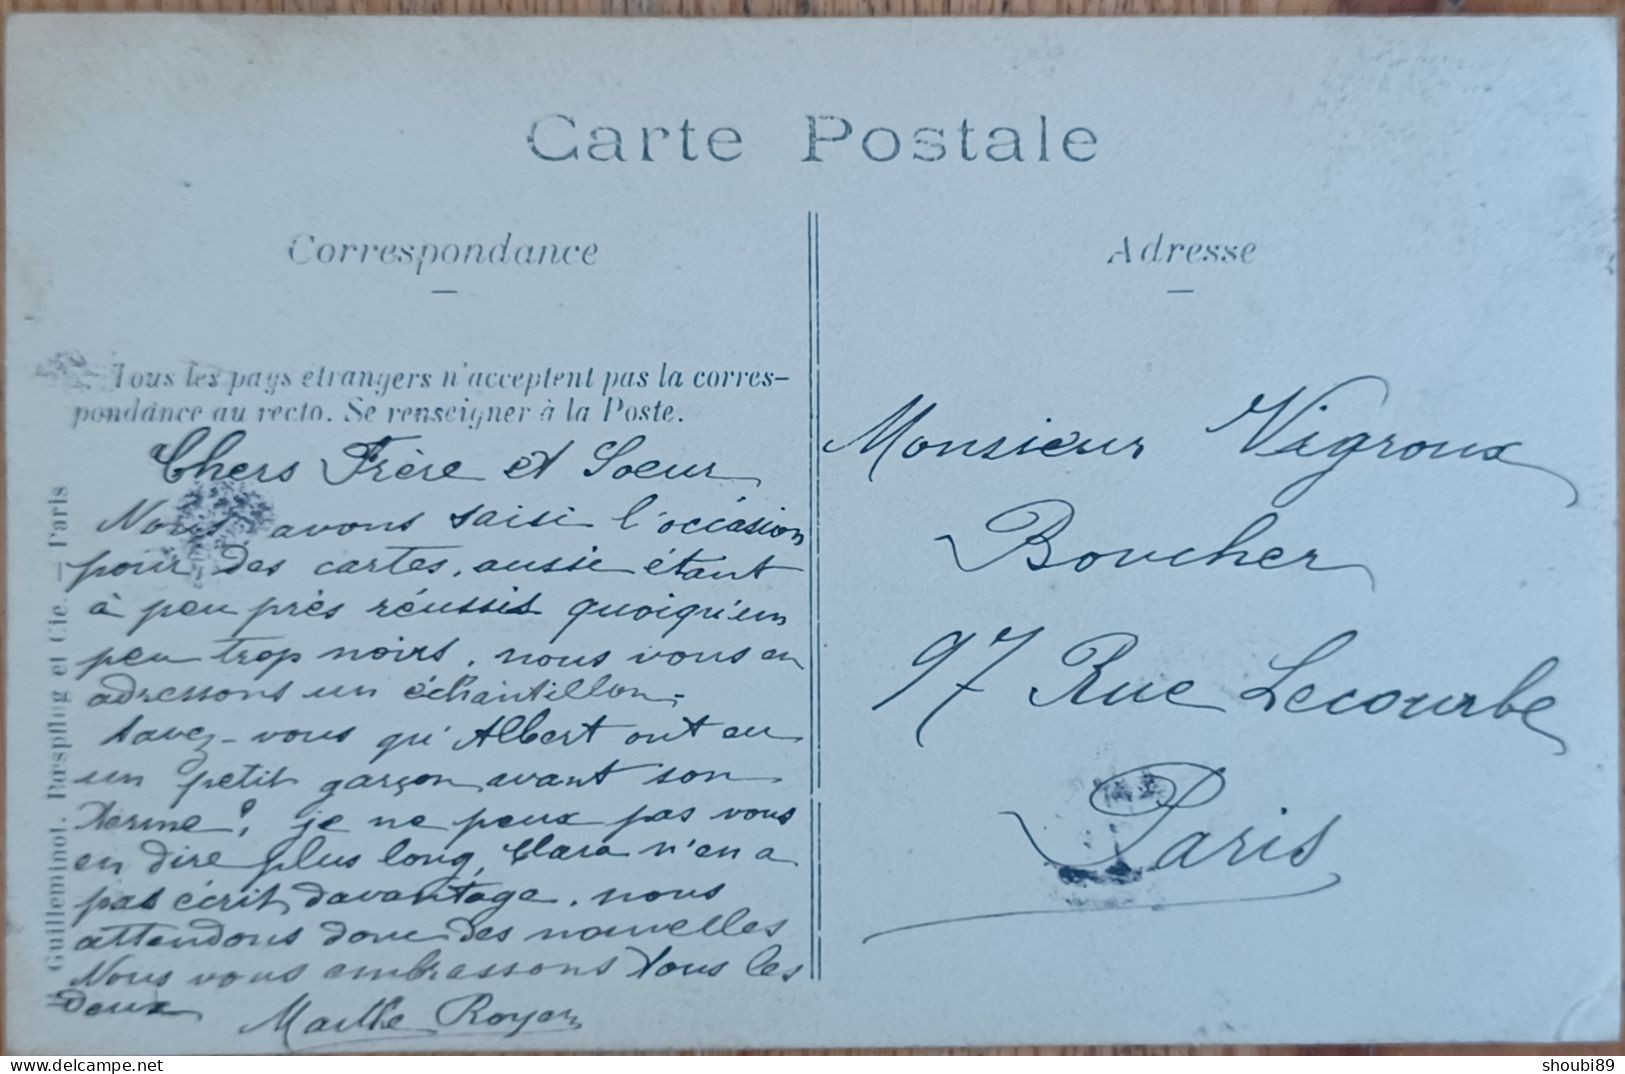 Carte Postale
Correspondance
Tous les pays étrangers n'acceptent pas la corres-
pondance au recto. Se renseigner à la Poste.
Chers Frère et Soeur
Nous avons saisi l'occasion
pour des cartes, aussi étant
à peu près réussis quoiqu'un
peu trop noirs, nous vous en
adressons un échantillon.
Savez-vous qu'Albert ont eu
un petit garçon avant son
terme? je ne peux pas vous
en dire plus long, Clara n'en a
pas écrit davantage, nous
attendons donc des nouvelles
Nous vous embrassons tous les
deux
Marthe Royer
Guilleminot, Bœspflug et Cie. — Paris
Adresse
Monsieur Vigroux
Boucher
97 Rue Lecourbe
Paris
delcampe.net
shoubi89